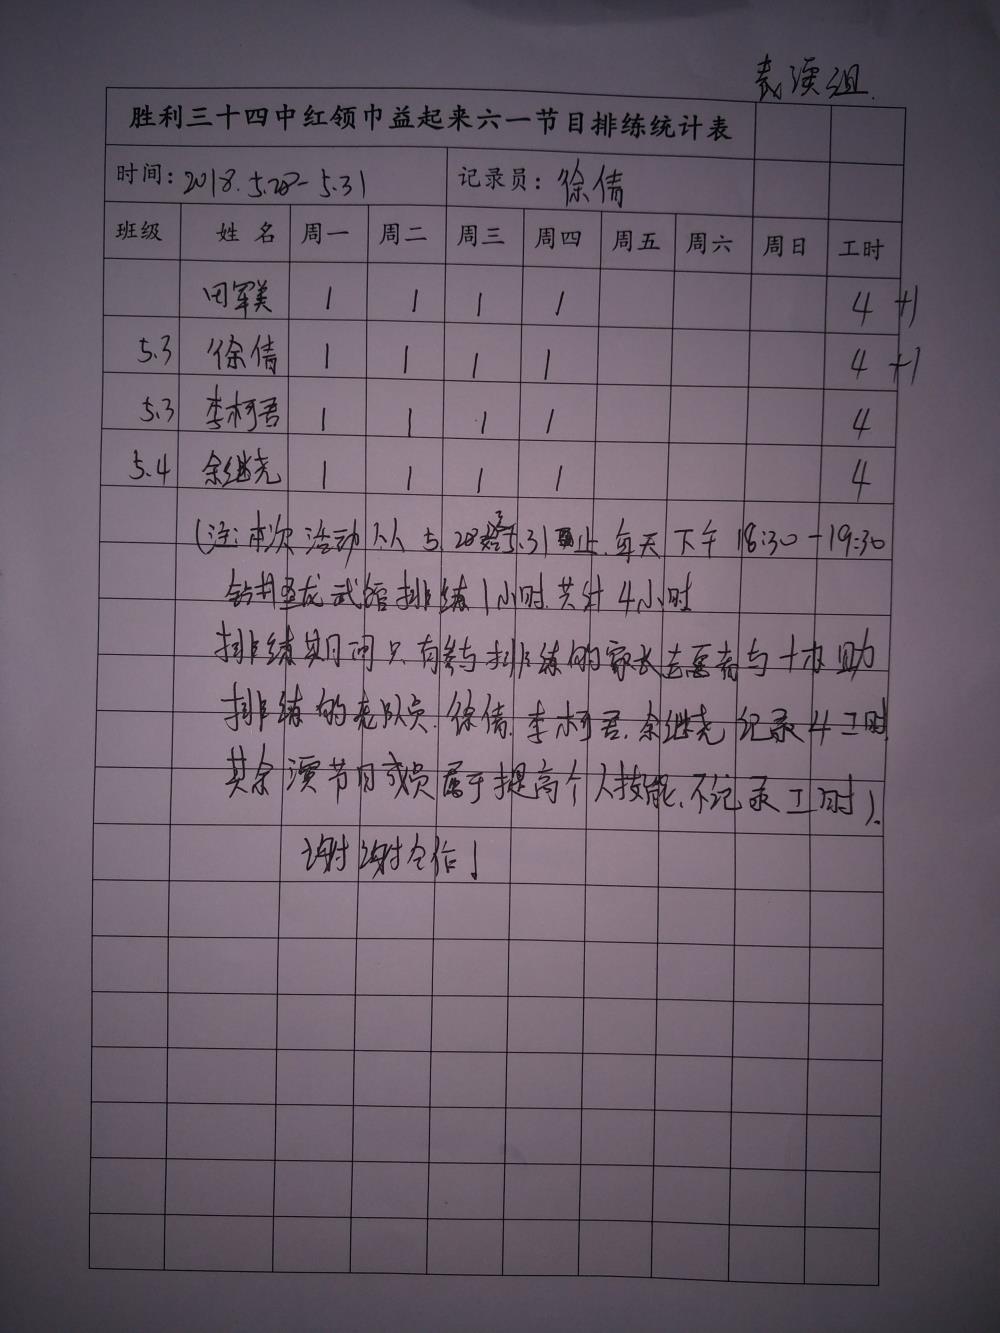 表演组.
胜利三十四中红领巾益起来六一节目排练统计表
时间: 2018.5.28-5.31 记录员: 徐倩
班级 姓名 周一 周二 周三 周四 周五 周六 周日 工时
田军美 1 1 1 1 4 +1
5.3 徐倩 1 1 1 1 4 +1
5.3 李柯君 1 1 1 1 4
5.4 余继尧 1 1 1 1 4
(注:本次活动从5.28至5.31止.每天下午18:30-19:30
钻井圣龙武馆排练1小时.共计4小时
排练期间只有参与排练的家长志愿者与协助
排练的老队员.徐倩.李柯君.余继尧纪录4工时
其余演节目成员属于提高个人技能.不记录工时).
谢谢合作!